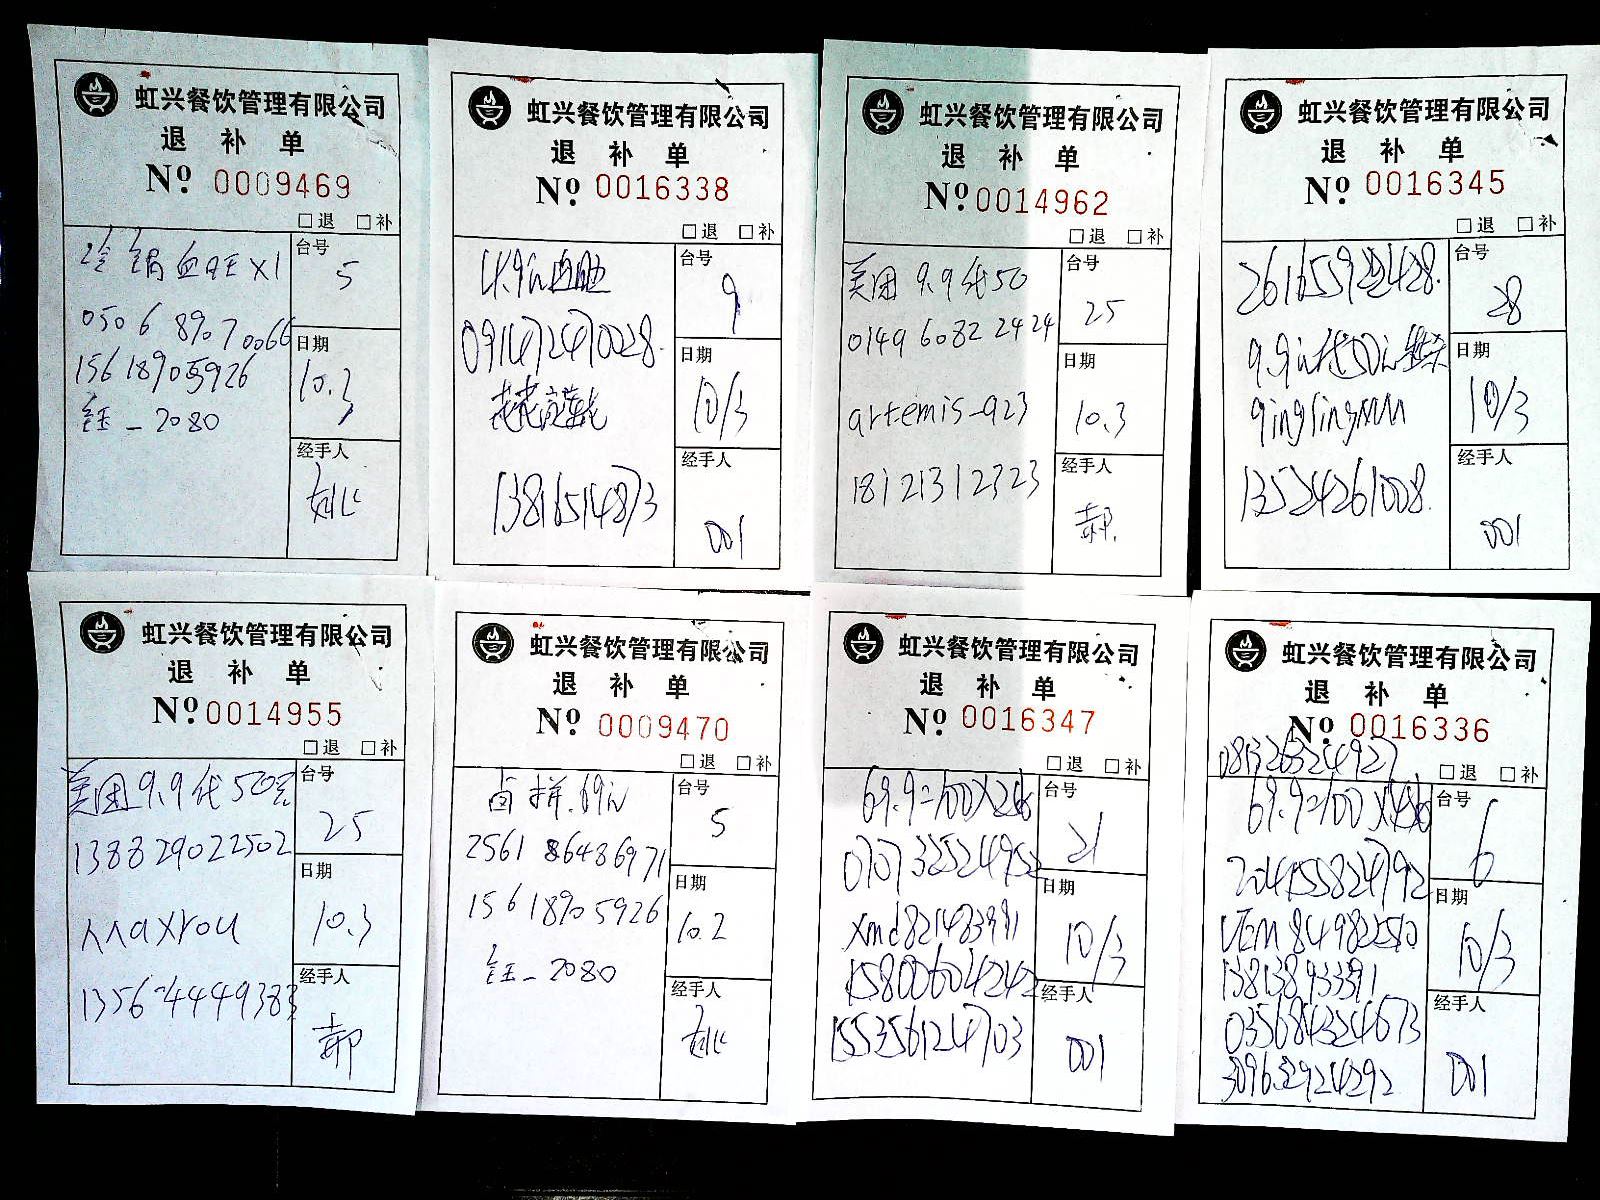 虹兴餐饮管理有限公司
退 补 单
Nº 0009469
□退 □补
冷锅血旺X1
0506 8907 0066
15618905926
钰_2080
台号
5
日期
10.3
经手人
虹兴餐饮管理有限公司
退 补 单
Nº 0016338
□退 □补
091472470028.
13816514873
台号
9
日期
10/3
经手人
001
虹兴餐饮管理有限公司
退 补 单
Nº 0014962
□退 □补
美团 9.9代50
0149 6082 2424
artemis-923
18121312323
台号
25
日期
10.3
经手人
郝.
虹兴餐饮管理有限公司
退 补 单
Nº 0016345
□退 □补
9.9元代50元
13524261008.
台号
28
日期
10/3
经手人
001
虹兴餐饮管理有限公司
退 补 单
Nº 0014955
□退 □补
美团9.9代50元
138829022502
13564449383
台号
25
日期
10.3
经手人
郝
虹兴餐饮管理有限公司
退 补 单
Nº 0009470
□退 □补
卤拼.69元
2561 86486971
15618905926
钰_2080
台号
5
日期
10.2
经手人
虹兴餐饮管理有限公司
退 补 单
Nº 0016347
□退 □补
070732524952
15800604242
155356124703
台号
21
日期
10/3
经手人
001
虹兴餐饮管理有限公司
退 补 单
Nº 0016336
081326324927
□退 □补
204155824792
13813893391
035684324673
309652924292
台号
6
日期
10/3
经手人
001